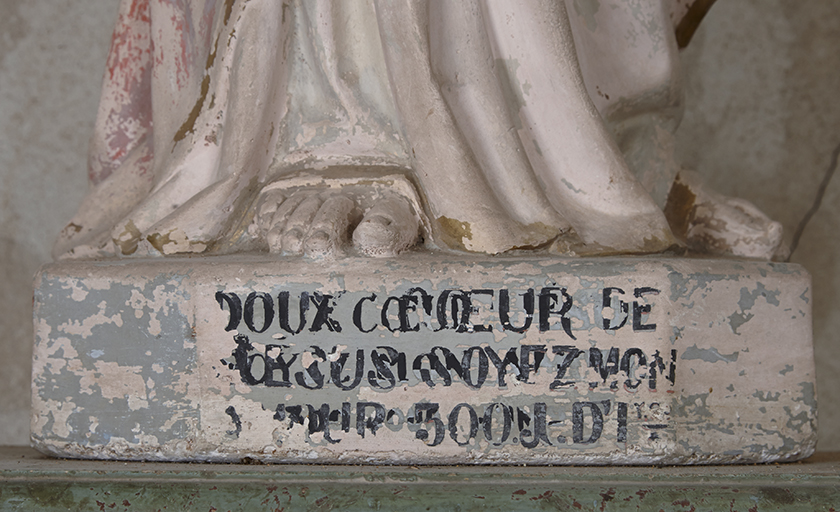 DOUX CŒUR DE
JESUS SOYEZ MON
300 J. D'I